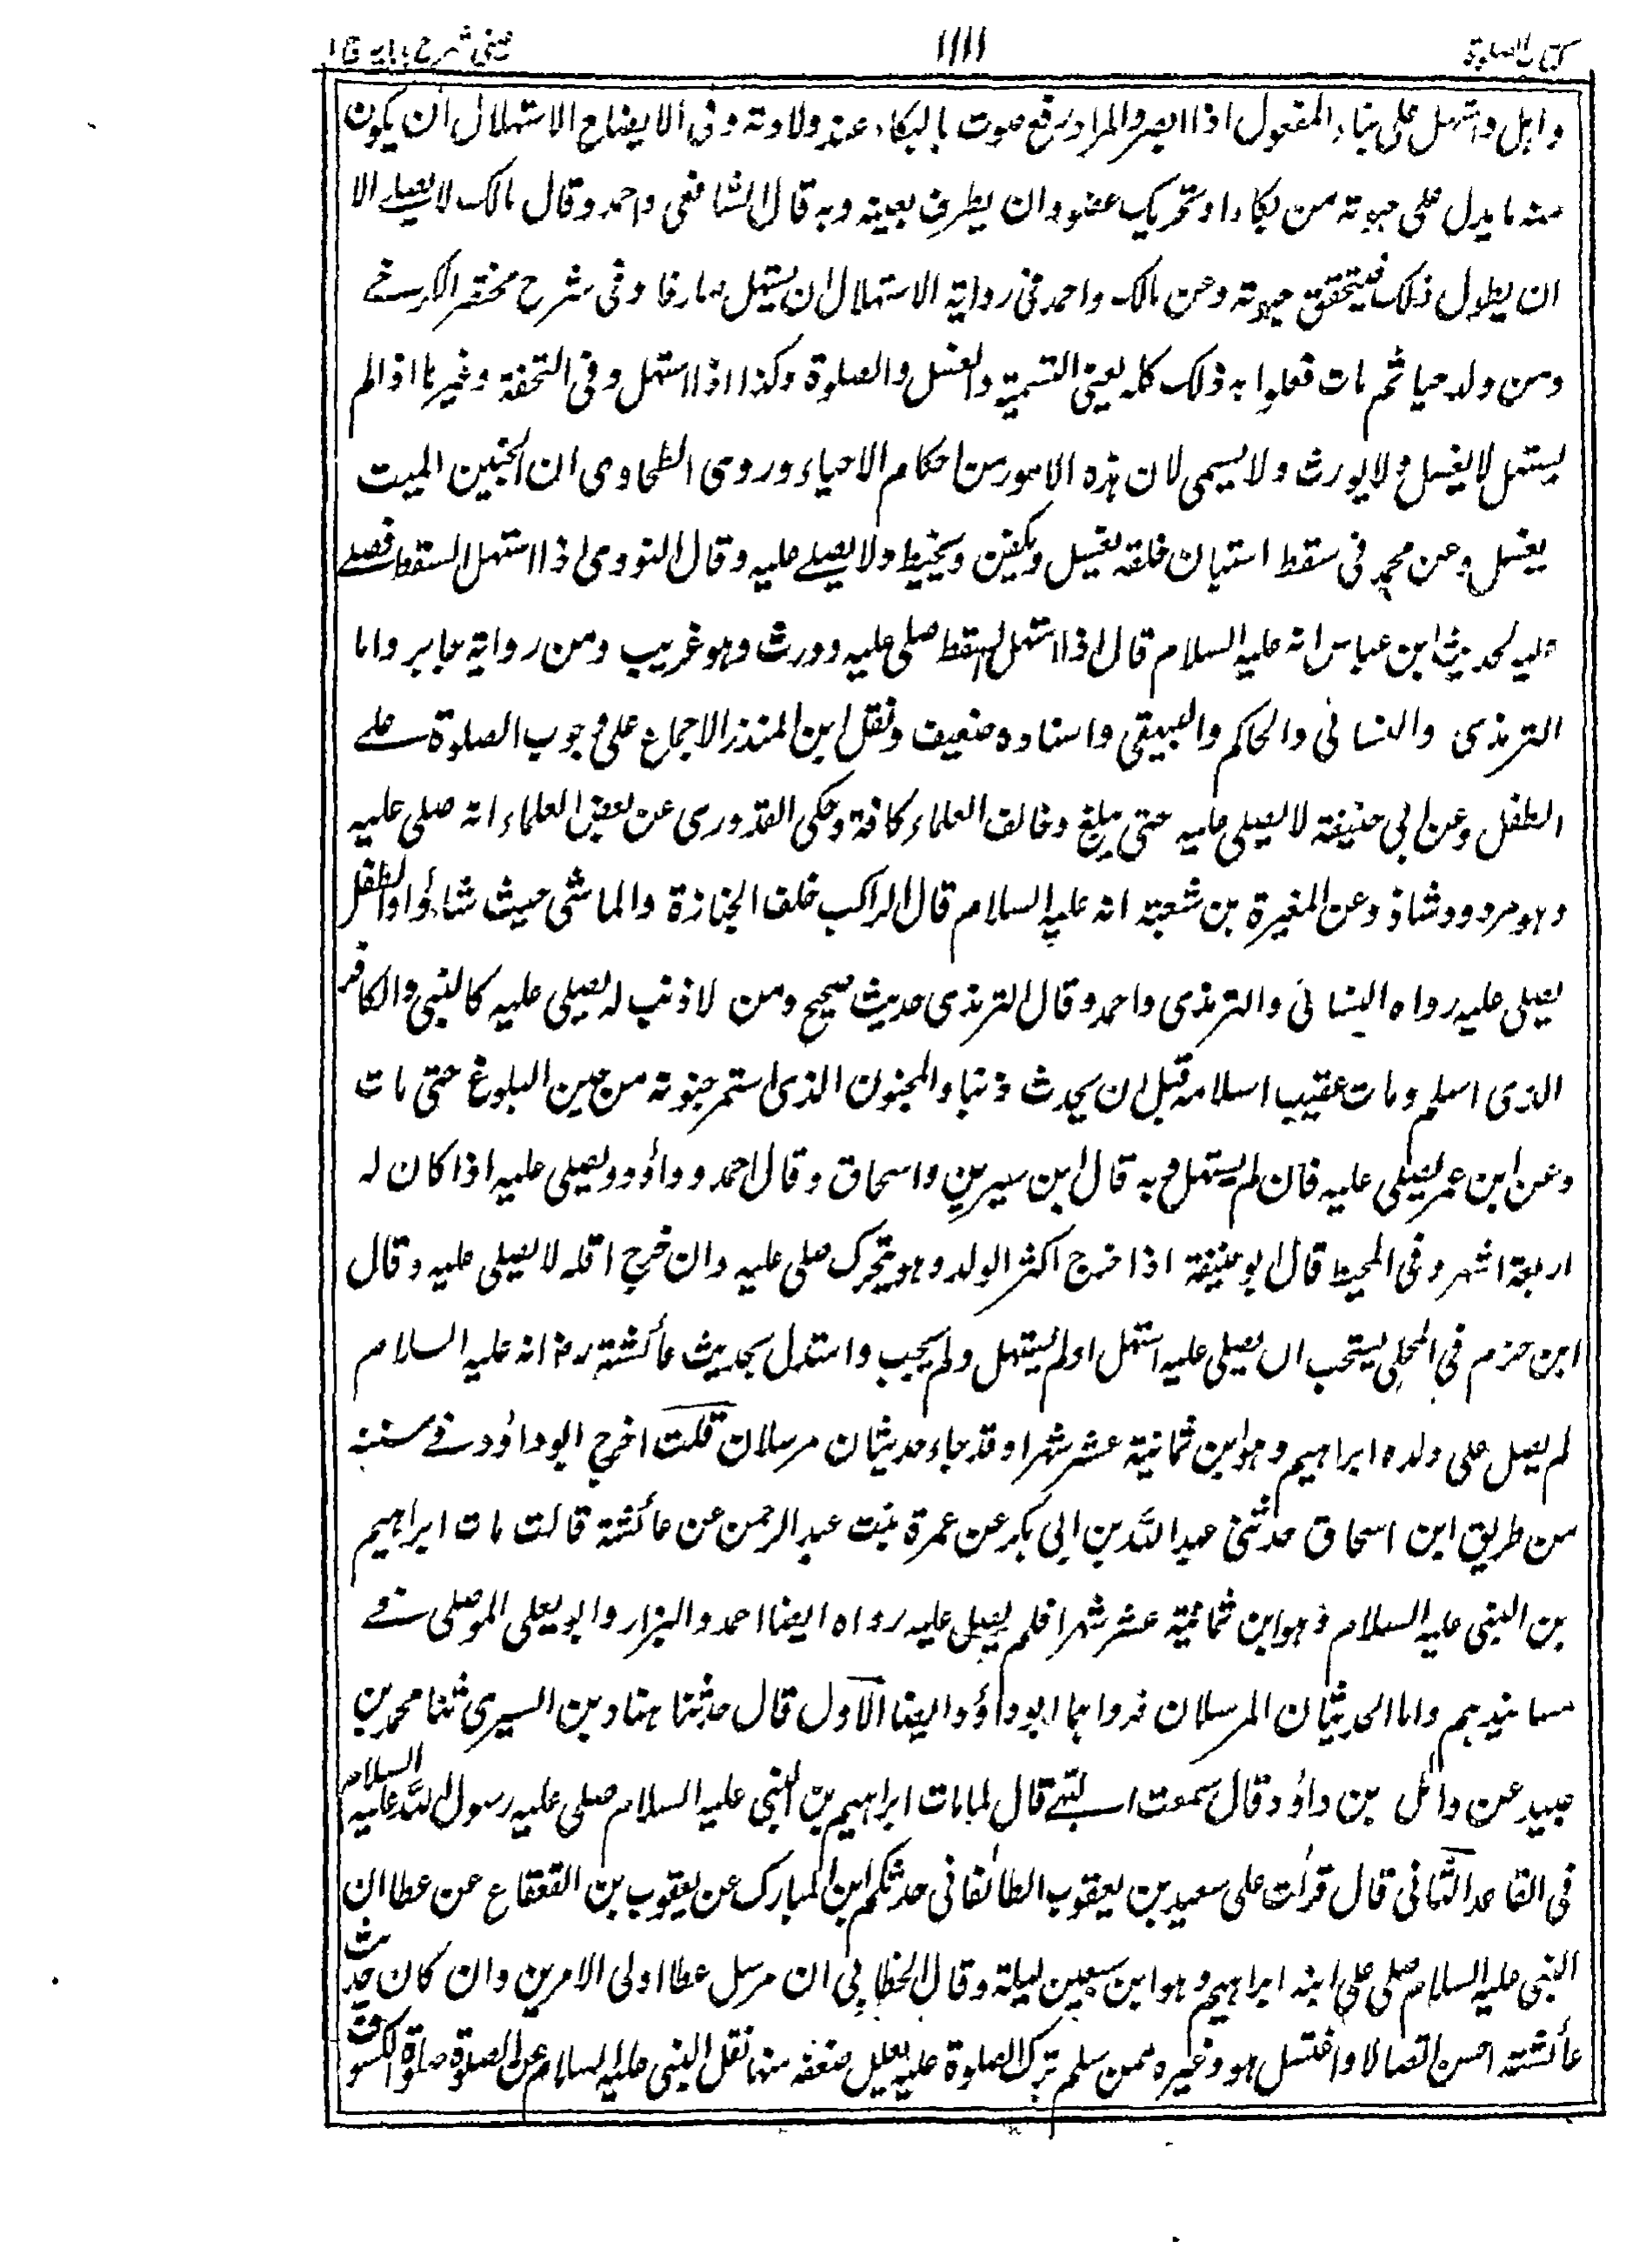 كتاب الصلوة
١١١١
عينى شرح هدايه ج ١
واهل واستهل على بناء المفعول اذا ابصر والمراد رفع صوت بالبكاء عند ولادته وفى الايضاح الاستهلال ان يكون
منه ما يدل على حيوته من بكاء او تحريك عضو وان يطرف بعينه وبه قال الشافعى واحمد وقال مالك لا يصلے الا
ان يطول ذلك فيتحقق حيوته وعن مالك واحمد فى رواية الاستهلال ان يستهل صارخا وفى شرح مختصر الكرخے
ومن ولد حيا ثم مات فعلوا به ذلك كله يعنى التسمية والغسل والصلوة وكذا اذا استهل وفى التحفة وغيرها اذا لم
يستهل لا يغسل ولا يورث ولا يسمى لان هذه الامور من احكام الاحياء وروى الطحاوى ان الجنين الميت
يغسل وعن محمد فى سقط استبان خلقه يغسل ويكفن ويحنط ولا يصلے عليه وقال النووى اذا استهل السقط فصلے
عليه لحديث ابن عباس انه عليه السلام قال اذا استهل السقط صلى عليه وورث وهو غريب ومن رواية جابر واما
الترمذى والنسائى والحاكم والبيهقى واسناده ضعيف ونقل ابن المنذر الاجماع على وجوب الصلوة علے
الطفل وعن ابى حنيفة لا يصلى عليه حتى يبلغ وخالف العلماء كافة وحكى القدورى عن بعض العلماء انه صلى عليه
وهو مردود شاذ وعن المغيرة بن شعبة انه عليه السلام قال الراكب خلف الجنازة والماشى حيث شاؤا والطفل
يصلى عليه رواه النسائى والترمذى واحمد وقال الترمذى حديث صحيح ومن لا ذنب له يصلى عليه كالنبى والكافر
الذى اسلم ومات عقيب اسلامه قبل ان يحدث ذنبا والمجنون الذى استمر جنونه من حين البلوغ حتى مات
وعن ابن عمر يصلى عليه فان لم يستهل وبه قال ابن سيرين واسحاق وقال احمد وداؤد ويصلى عليه اذا كان له
اربعة اشهر وفى المحيط قال ابو حنيفة اذا خرج اكثر الولد وهو يتحرك صلى عليه وان خرج اقله لا يصلى عليه وقال
ابن حزم فى المحلى يستحب ان يصلى عليه استهل او لم يستهل ولم يجب واستدل بحديث عائشة رض انه عليه السلام
لم يصل على ولده ابراهيم وهو ابن ثمانية عشر شهرا وقد جاء حديثان مرسلان قلت اخرج ابو داؤد فے سننه
من طريق ابن اسحاق حدثنى عبد الله بن ابى بكر عن عمرة بنت عبد الرحمن عن عائشة قالت مات ابراهيم
بن النبى عليه السلام وهو ابن ثمانية عشر شهرا فلم يصل عليه رواه ايضا احمد والبزار وابو يعلى الموصلى فے
مسانيدهم واما الحديثان المرسلان فرواهما ابو داؤد ايضا الاول قال حدثنا هناد بن السرى ثنا محمد بن
عبيد عن وائل بن داؤد قال سمعت البهے قال لما مات ابراهيم بن النبى عليه السلام صلى عليه رسول الله عليه السلام
فى القاعد الثانى قال قرات على سعيد بن يعقوب الطالقانى حدثكم ابن المبارك عن يعقوب بن القعقاع عن عطا ان
النبى عليه السلام صلى على ابنه ابراهيم وهو ابن سبعين ليلة وقال الخطابى ان مرسل عطا اولى الامرين وان كان حديث
عائشة احسن اتصالا واغتسل هو وغيره ممن سلم ترك الصلوة عليه بعلل ضعفه منها نقل النبى عليه السلام عن الصلوة صلوة الكسوف